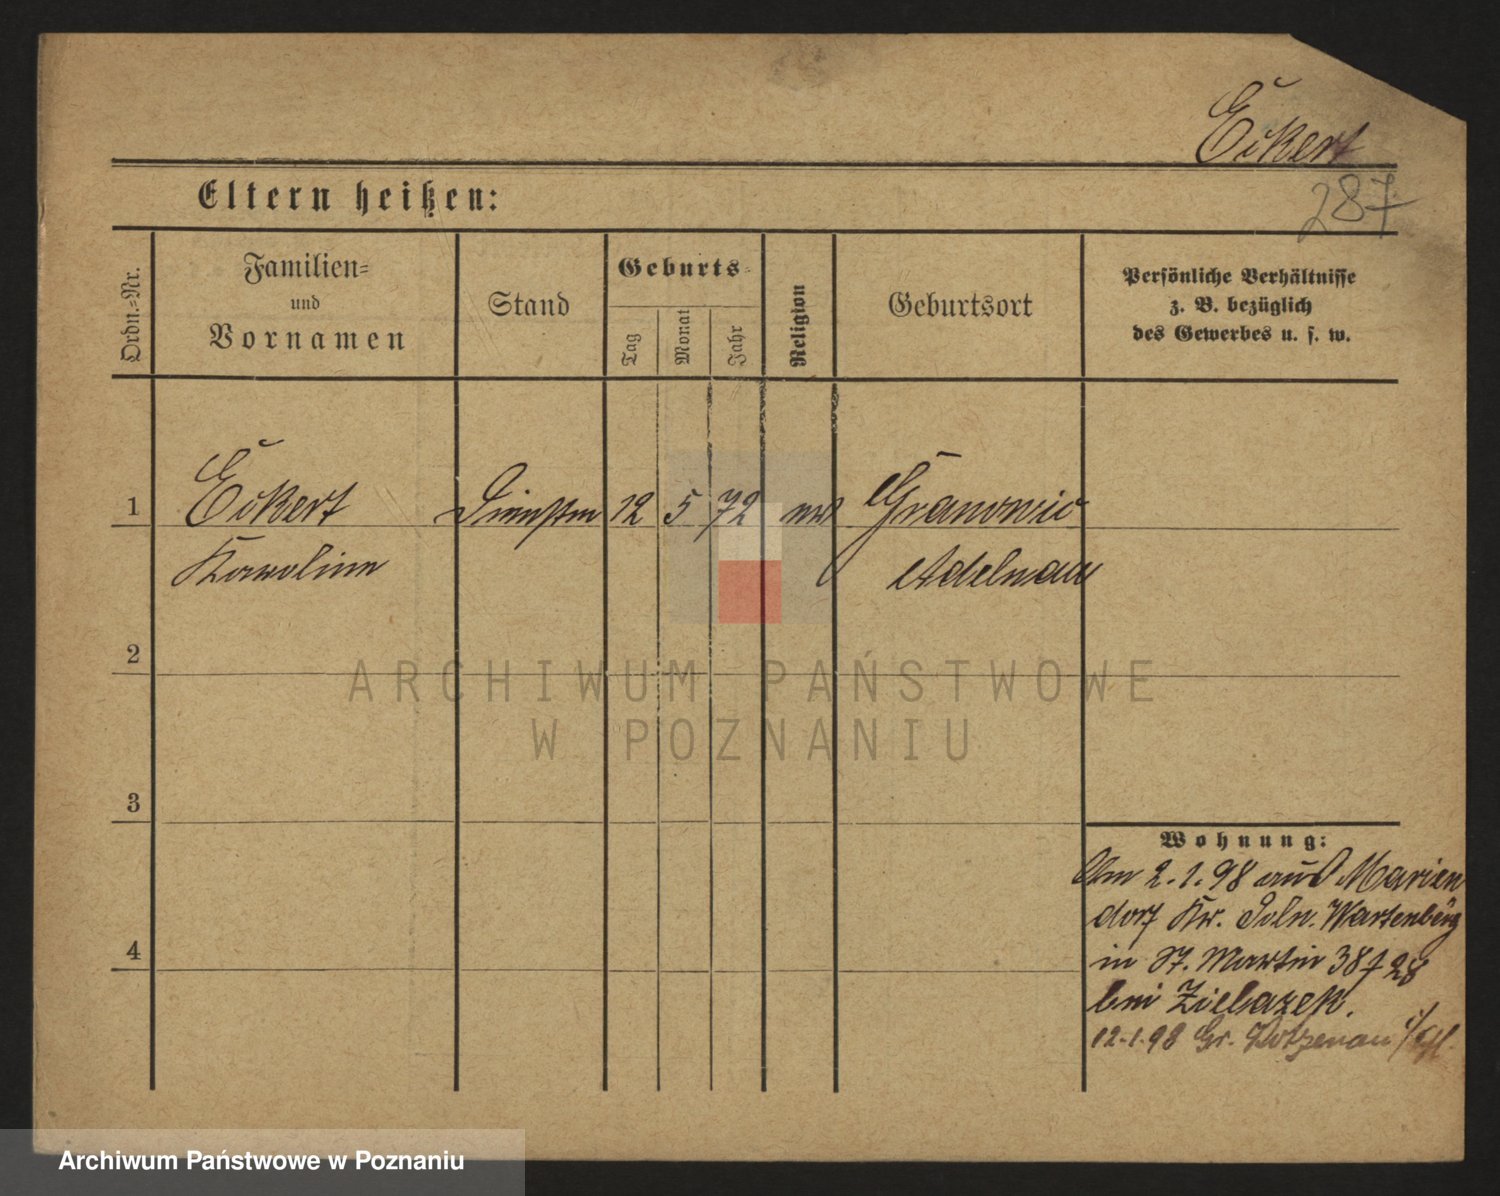 Eckert
287
Eltern heißen:
Ordn.=Nr.
Familien=
und
Vornamen
Stand
Geburts=
Tag
Monat
Jahr
Religion
Geburtsort
Persönliche Verhältnisse
z. B. bezüglich
des Gewerbes u. s. w.
1 Eckert 12 5 72 ev
Karoline Adelnau
2
3
4
ARCHIWUM PAŃSTWOWE
W POZNANIU
Wohnung:
Am 2.1.98 aus Marien
dorf Kr. Poln. Wartenberg
in St. Martin 38
bei
12.1.98 Gr.
Archiwum Państwowe w Poznaniu